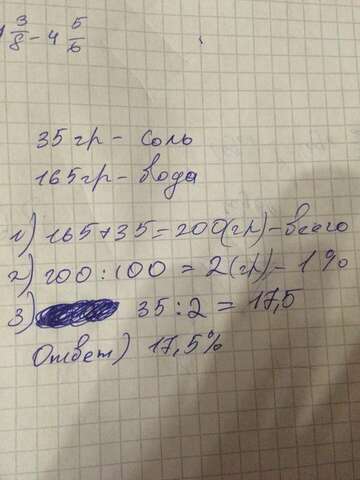 3/8 - 4 5/6
35 гр - соль
165 гр - вода
1) 165+35=200(гр)-всего
2) 200:100=2(гр)-1%
3) 35:2=17,5
Ответ) 17,5%